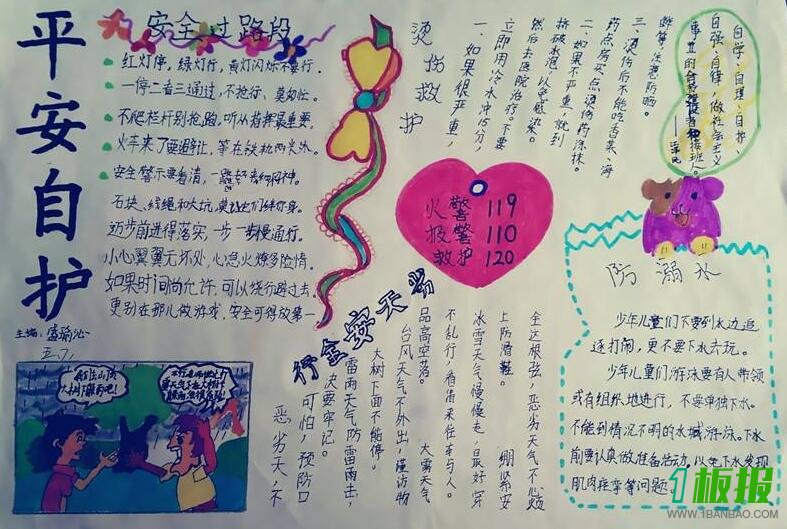 平安自护
主编:盛瑜沁
五.7.
安全过路段
红灯停,绿灯行,黄灯闪烁不要行.
一停二看三通过,不抢行、莫匆忙.
不爬栏杆别抢跑,听从指挥最重要,
火车来了要避让,等在铁轨两头外.
安全警示要看清,
石块、线绳和大坑,
迈步前进得落实,一步一步慢通行.
小心翼翼无坏处,心急火燎多险情.
如果时间尚允许,可以绕行避过去,
更别在那儿做游戏,安全可得放第一
烫伤救护
一、如果很严重,
立即用冷水冲15分,
然后去医院治疗。不要
挤破水泡,以免感染。
二、如果不严重,就到
药点房买点烫伤药涂抹。
三、烫伤后不能吃香菜、海
鲜等,注意防晒。
自学、自理、自护、
自强、自律,做社会主义
事业的合格建设者和接班人。
火警 119
报警 110
救护 120
防溺水
少年儿童们不要到水边追
逐打闹,更不要下水去玩。
少年儿童们游泳要有人带领
或有组织地进行,不要单独下水。
不能到情况不明的水域游泳。下水
前要认真做准备活动,以免下水发现
肌肉痉挛等问题。
恶劣天气安全行
恶劣天,不
可怕,预防口
决要牢记。
雷雨天气防雷雨击,
大树下面不能停。
台风天气不外出,谨防物
品高空落。 大雾天气
不乱行,看清来往车与人。
冰雪天气慢慢走,最好穿
上防滑鞋。 绷紧安
全这根弦,恶劣天气不心烦
1板报
WWW.1BANBAO.COM